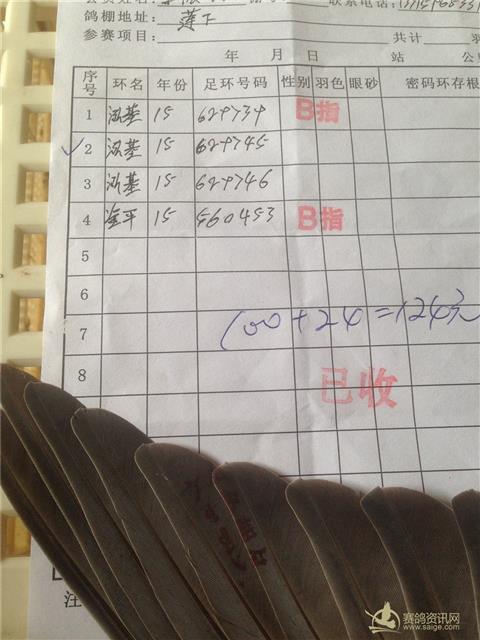 鸽棚地址： 莲下
参赛项目： 共计
年 月 日 站
序号 环名 年份 足环号码 性别 羽色 眼砂 密码环存根
1 泓基 15 629739 B指
2 泓基 15 629745
3 泓基 15 629746
4 金平 15 560453 B指
5
6
100+24=124元
7
8 已收
注
赛鸽资讯网
www.saige.com